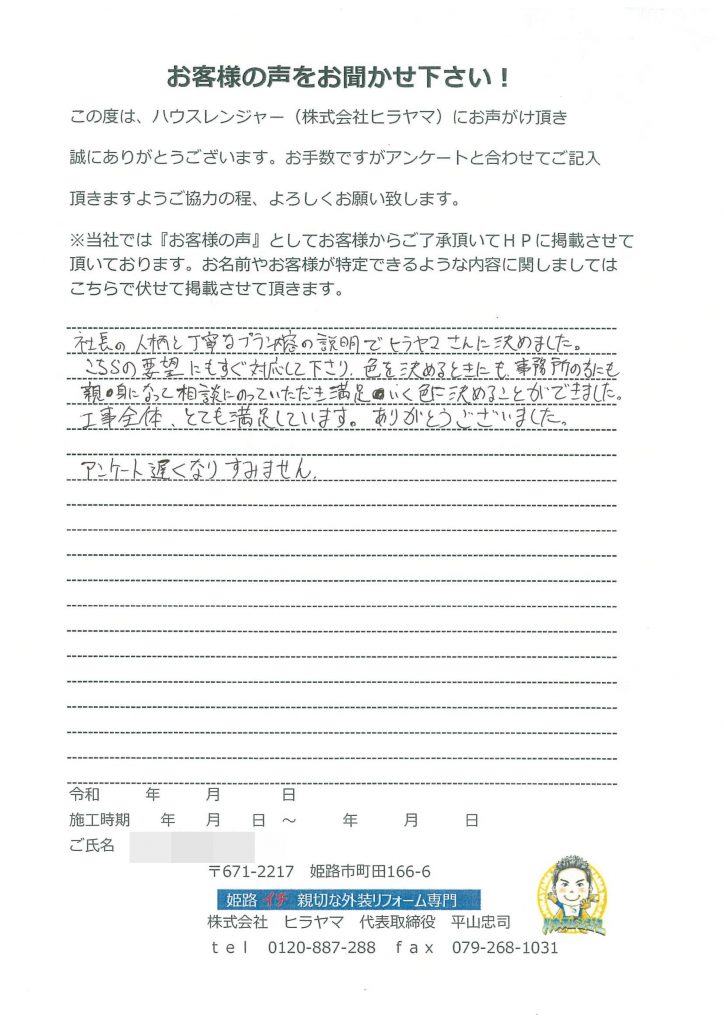 お客様の声をお聞かせ下さい！
この度は、ハウスレンジャー（株式会社ヒラヤマ）にお声がけ頂き
誠にありがとうございます。お手数ですがアンケートと合わせてご記入
頂きますようご協力の程、よろしくお願い致します。
※当社では『お客様の声』としてお客様からご了承頂いてＨＰに掲載させて
頂いております。お名前やお客様が特定できるような内容に関しましては
こちらで伏せて掲載させて頂きます。
社長の人柄と丁寧なプラン内容の説明でヒラヤマさんに決めました。
こちらの要望にもすぐ対応して下さり、色を決めるときにも、事務所の方にも
親身になって相談にのっていただき満足いく色に決めることができました。
工事全体、とても満足しています。ありがとうございました。
アンケート遅くなりすみません。
令和　　年　　月　　日
施工時期　　年　　月　　日　～　　年　　月　　日
ご氏名
〒671-2217　姫路市町田166-6
姫路 イチ 親切な外装リフォーム専門
株式会社　ヒラヤマ　代表取締役　平山忠司
ｔｅｌ　0120-887-288　ｆａｘ　079-268-1031